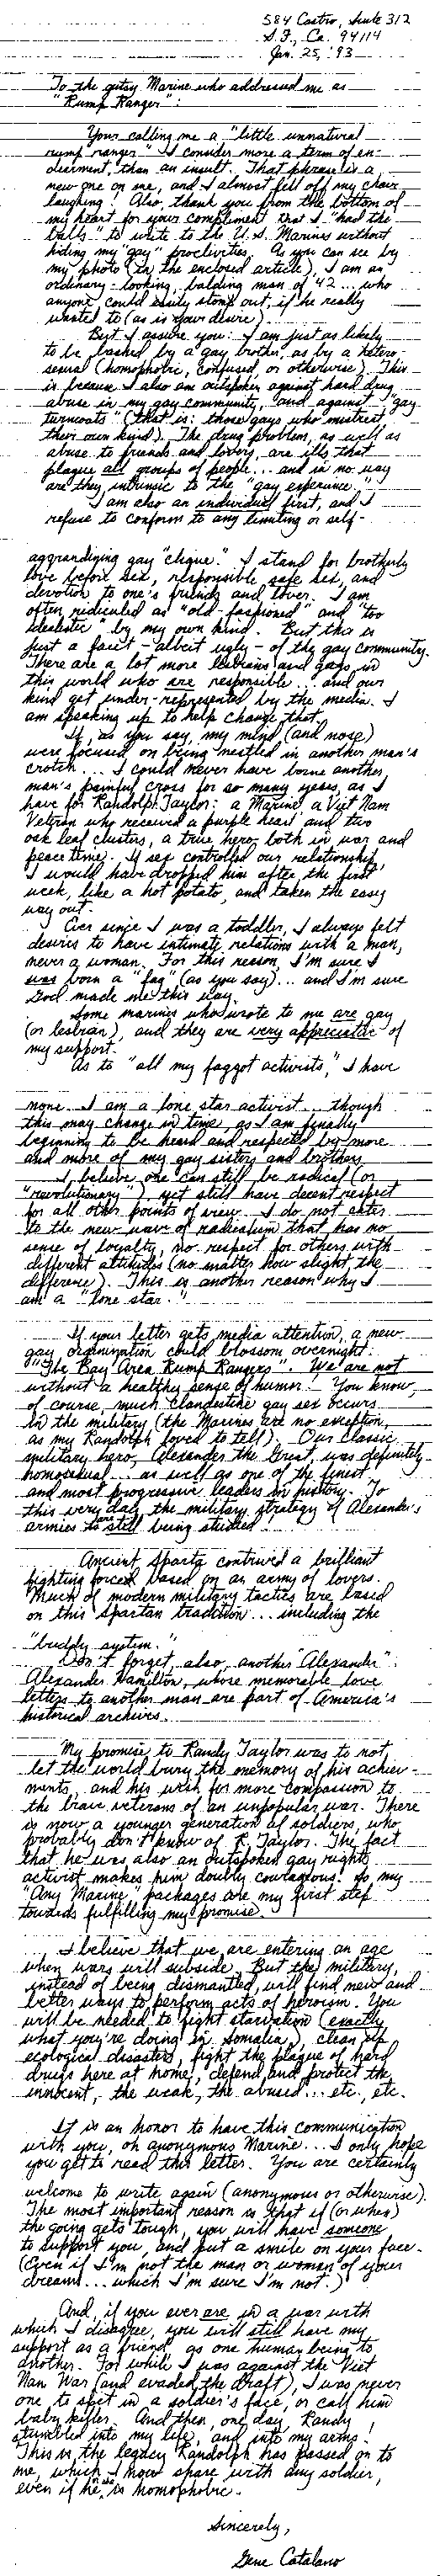 584 Castro, Suite 312
S.F., Ca. 94114
Jan. 25, '93
To the gutsy Marine who addressed me as
"Rump Ranger":
Your calling me a "little unnatural
rump ranger" I consider more a term of en-
dearment, than an insult. That phrase is a
new one on me, and I almost fell off my chair
laughing! Also, thank you from the bottom of
my heart for your compliment that I "had the
balls" to write to the U.S. Marines without
hiding my "gay" proclivities. As you can see by
my photo (in the enclosed article), I am an
ordinary-looking, balding man of 42... who
anyone could easily stomp out, if he really
wanted to (as is your desire).
But I assure you: I am just as likely
to be bashed by a gay brother, as by a hetero-
sexual (homophobic, confused, or otherwise). This
is because I also am outspoken against hard drug
abuse in my gay community, and against "gay
turncoats" (that is: those gays who mistreat
their own kind). The drug problem, as well as
abuse to friends and lovers, are ills that
plague all groups of people... and in no way
are they intrinsic to the "gay experience."
I am also an individual first, and I
refuse to conform to any limiting or self-
aggrandizing gay "clique." I stand for brotherly
love before sex, responsible safe sex, and
devotion to one's friends and lover. I am
often ridiculed as "old-fashioned" and "too
idealistic" by my own kind. But this is
just a facit - albeit ugly - of the gay community.
There are a lot more lesbians and gays in
this world who are responsible... and our
kind get under-represented by the media. I
am speaking up to help change that.
If, as you say, my mind (and nose)
were focused on being nestled in another man's
crotch... I could never have borne another
man's painful cross for so many years, as I
have for Randolph Taylor: a Marine, a Viet Nam
Veteran who received a purple heart and two
oak leaf clusters, a true hero both in war and
peace time. If sex controlled our relationship,
I would have dropped him after the first
week, like a hot potato, and taken the easy
way out.
Ever since I was a toddler, I always felt
desires to have intimate relations with a man,
never a woman. For this reason, I'm sure I
was born a "fag" (as you say)... and I'm sure
God made me this way.
Some marines who wrote to me are gay
(or lesbian), and they are very appreciative of
my support.
As to "all my faggot activists," I have
none. I am a lone star activist... though
this may change in time, as I am finally
beginning to be heard and respected by more
and more of my gay sisters and brothers.
I believe one can still be radical (or
"revolutionary"), yet still have decent respect
for all other points of view. I do not cater
to the new wave of radicalism that has no
sense of loyalty, no respect for others with
different attitudes (no matter how slight the
difference). This is another reason why I
am a "lone star."
If your letter gets media attention, a new
gay organization could blossom overnight:
"The Bay Area Rump Rangers". We are not
without a healthy sense of humor! You know,
of course, much clandestine gay sex occurs
in the military (the Marines are no exception,
as my Randolph loved to tell). Our classic
military hero, Alexander the Great, was definitely
homosexual... as well as one of the finest
and most progressive leaders in history. To
this very day, the military strategy of Alexander's
armies are still being studied.
Ancient Sparta contrived a brilliant
fighting forced based on an army of lovers.
Much of modern military tactics are based
on this Spartan tradition... including the
"buddy system."
Don't forget, also, another "Alexander":
Alexander Hamilton, whose memorable love
letters to another man are part of America's
historical archives.
My promise to Randy Taylor was to not
let the world bury the memory of his achieve-
ments, and his wish for more compassion to
the brave veterans of an unpopular war. There
is now a younger generation of soldiers, who
probably don't know of R. Taylor. The fact
that he was also an outspoken gay rights
activist makes him doubly courageous. So my
"Any Marine" packages are my first step
towards fulfilling my promise.
I believe that we are entering an age
when wars will subside. But the military,
instead of being dismantled, will find new and
better ways to perform acts of heroism. You
will be needed to fight starvation (exactly
what you're doing in Somalia), clean up
ecological disasters, fight the plague of hard
drugs here at home, defend and protect the
innocent, the weak, the abused... etc., etc.
It is an honor to have this communication
with you, oh anonymous Marine... I only hope
you get to read this letter. You are certainly
welcome to write again (anonymous or otherwise).
The most important reason is that if (or when)
the going gets tough, you will have someone
to support you, and put a smile on your face.
(Even if I'm not the man or woman of your
dreams... which I'm sure I'm not.)
And, if you ever are in a war with
which I disagree, you will still have my
support as a friend, as one human being to
another. For while I was against the Viet
Nam War (and evaded the draft), I was never
one to spit in a soldier's face, or call him
baby killer. And then, one day, Randy
stumbled into my life, and into my arms!
This is the legacy Randolph has passed on to
me, which I now share with any soldier,
even if he is homophobic.
Sincerely,
Gene Catalano